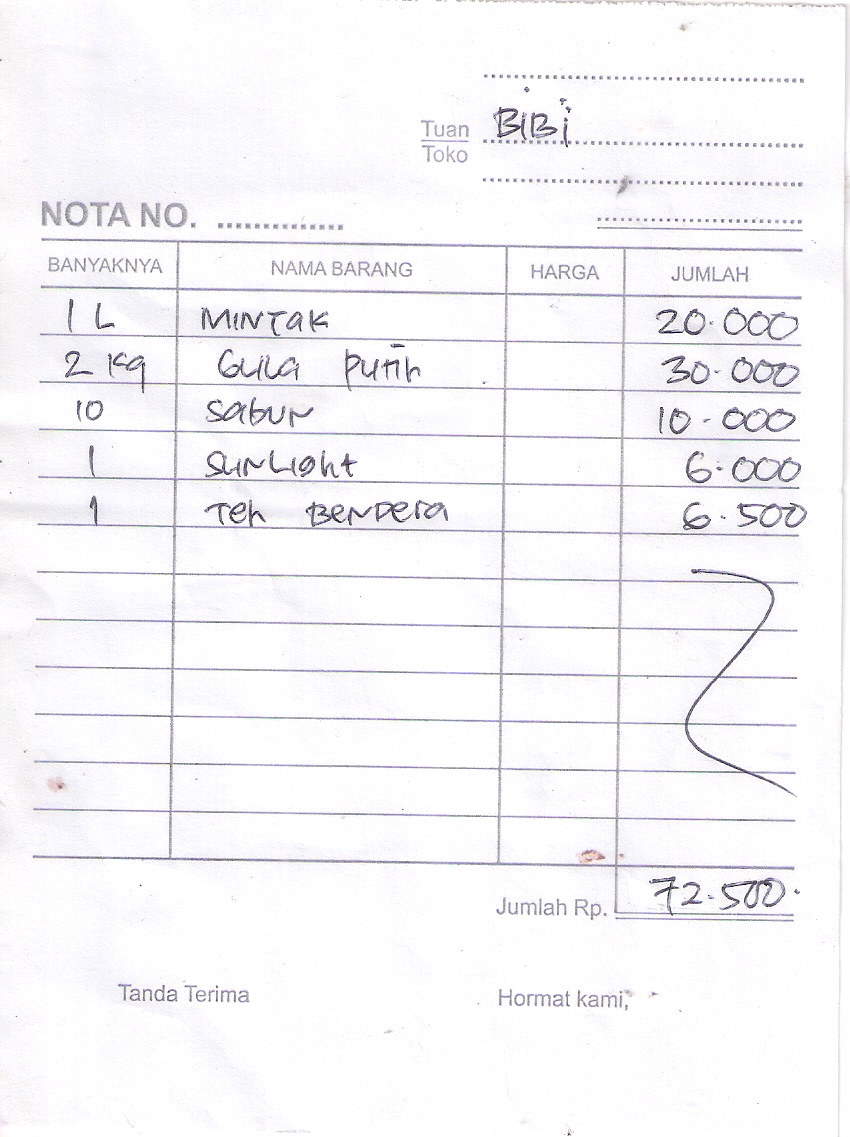 Tuan BiBi
Toko
NOTA NO. ..............
BANYAKNYA NAMA BARANG HARGA JUMLAH
1 L MINTAK 20.000
2 Kg Gula Putih 30.000
10 Sabun 10.000
1 Sunlight 6.000
1 Teh Bendera 6.500
Jumlah Rp. 72.500.
Tanda Terima Hormat kami,